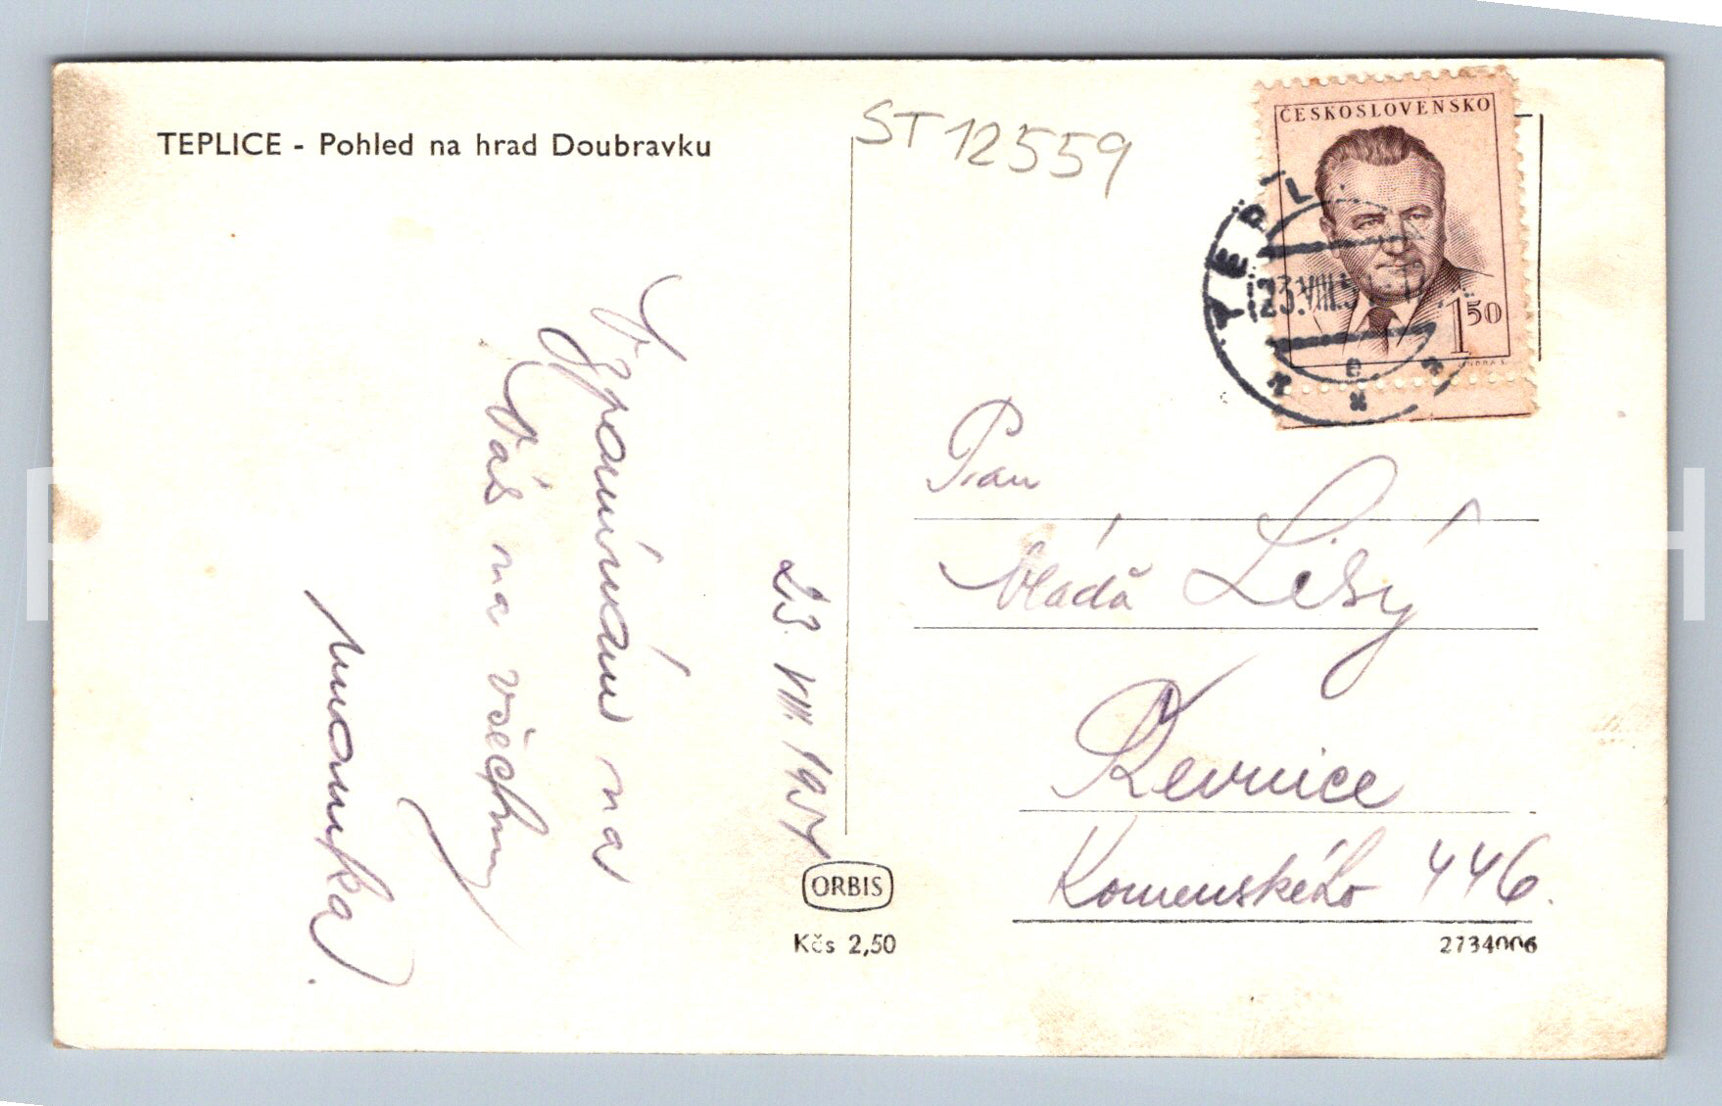 TEPLICE - Pohled na hrad Doubravku
ST 12559
ČESKOSLOVENSKO
1 50
TEPL
23.VIII.5
23. VIII. 195
Vzpomínám na
Vás na všechny
maminka.
Pan
Vláďa Lisý
Řevnice
Komenského 446.
ORBIS
Kčs 2,50
2734006